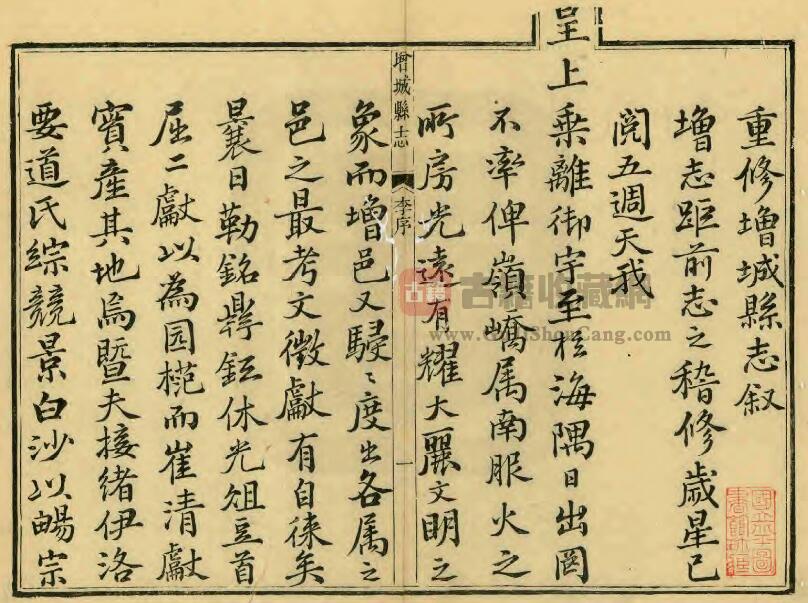 重修增城縣志叙
增志距前志之稽修歲星已
閱五週天我
呈上乘離御宇至于海隅日出罔
不率俾嶺嶠属南服火之
所房光遠有耀大麗文明之
增城縣志
李序
一
象而增邑又駸〻度出各属之
邑之最考文徵獻有自徠矣
曩日勒銘鼎鉉休光俎豆首
屈二獻以為國楨而崔清獻
實產其地焉暨夫接緒伊洛
要道氏綜競景白沙以暢宗
古籍
古籍收藏網
www.GuJiShouCang.com